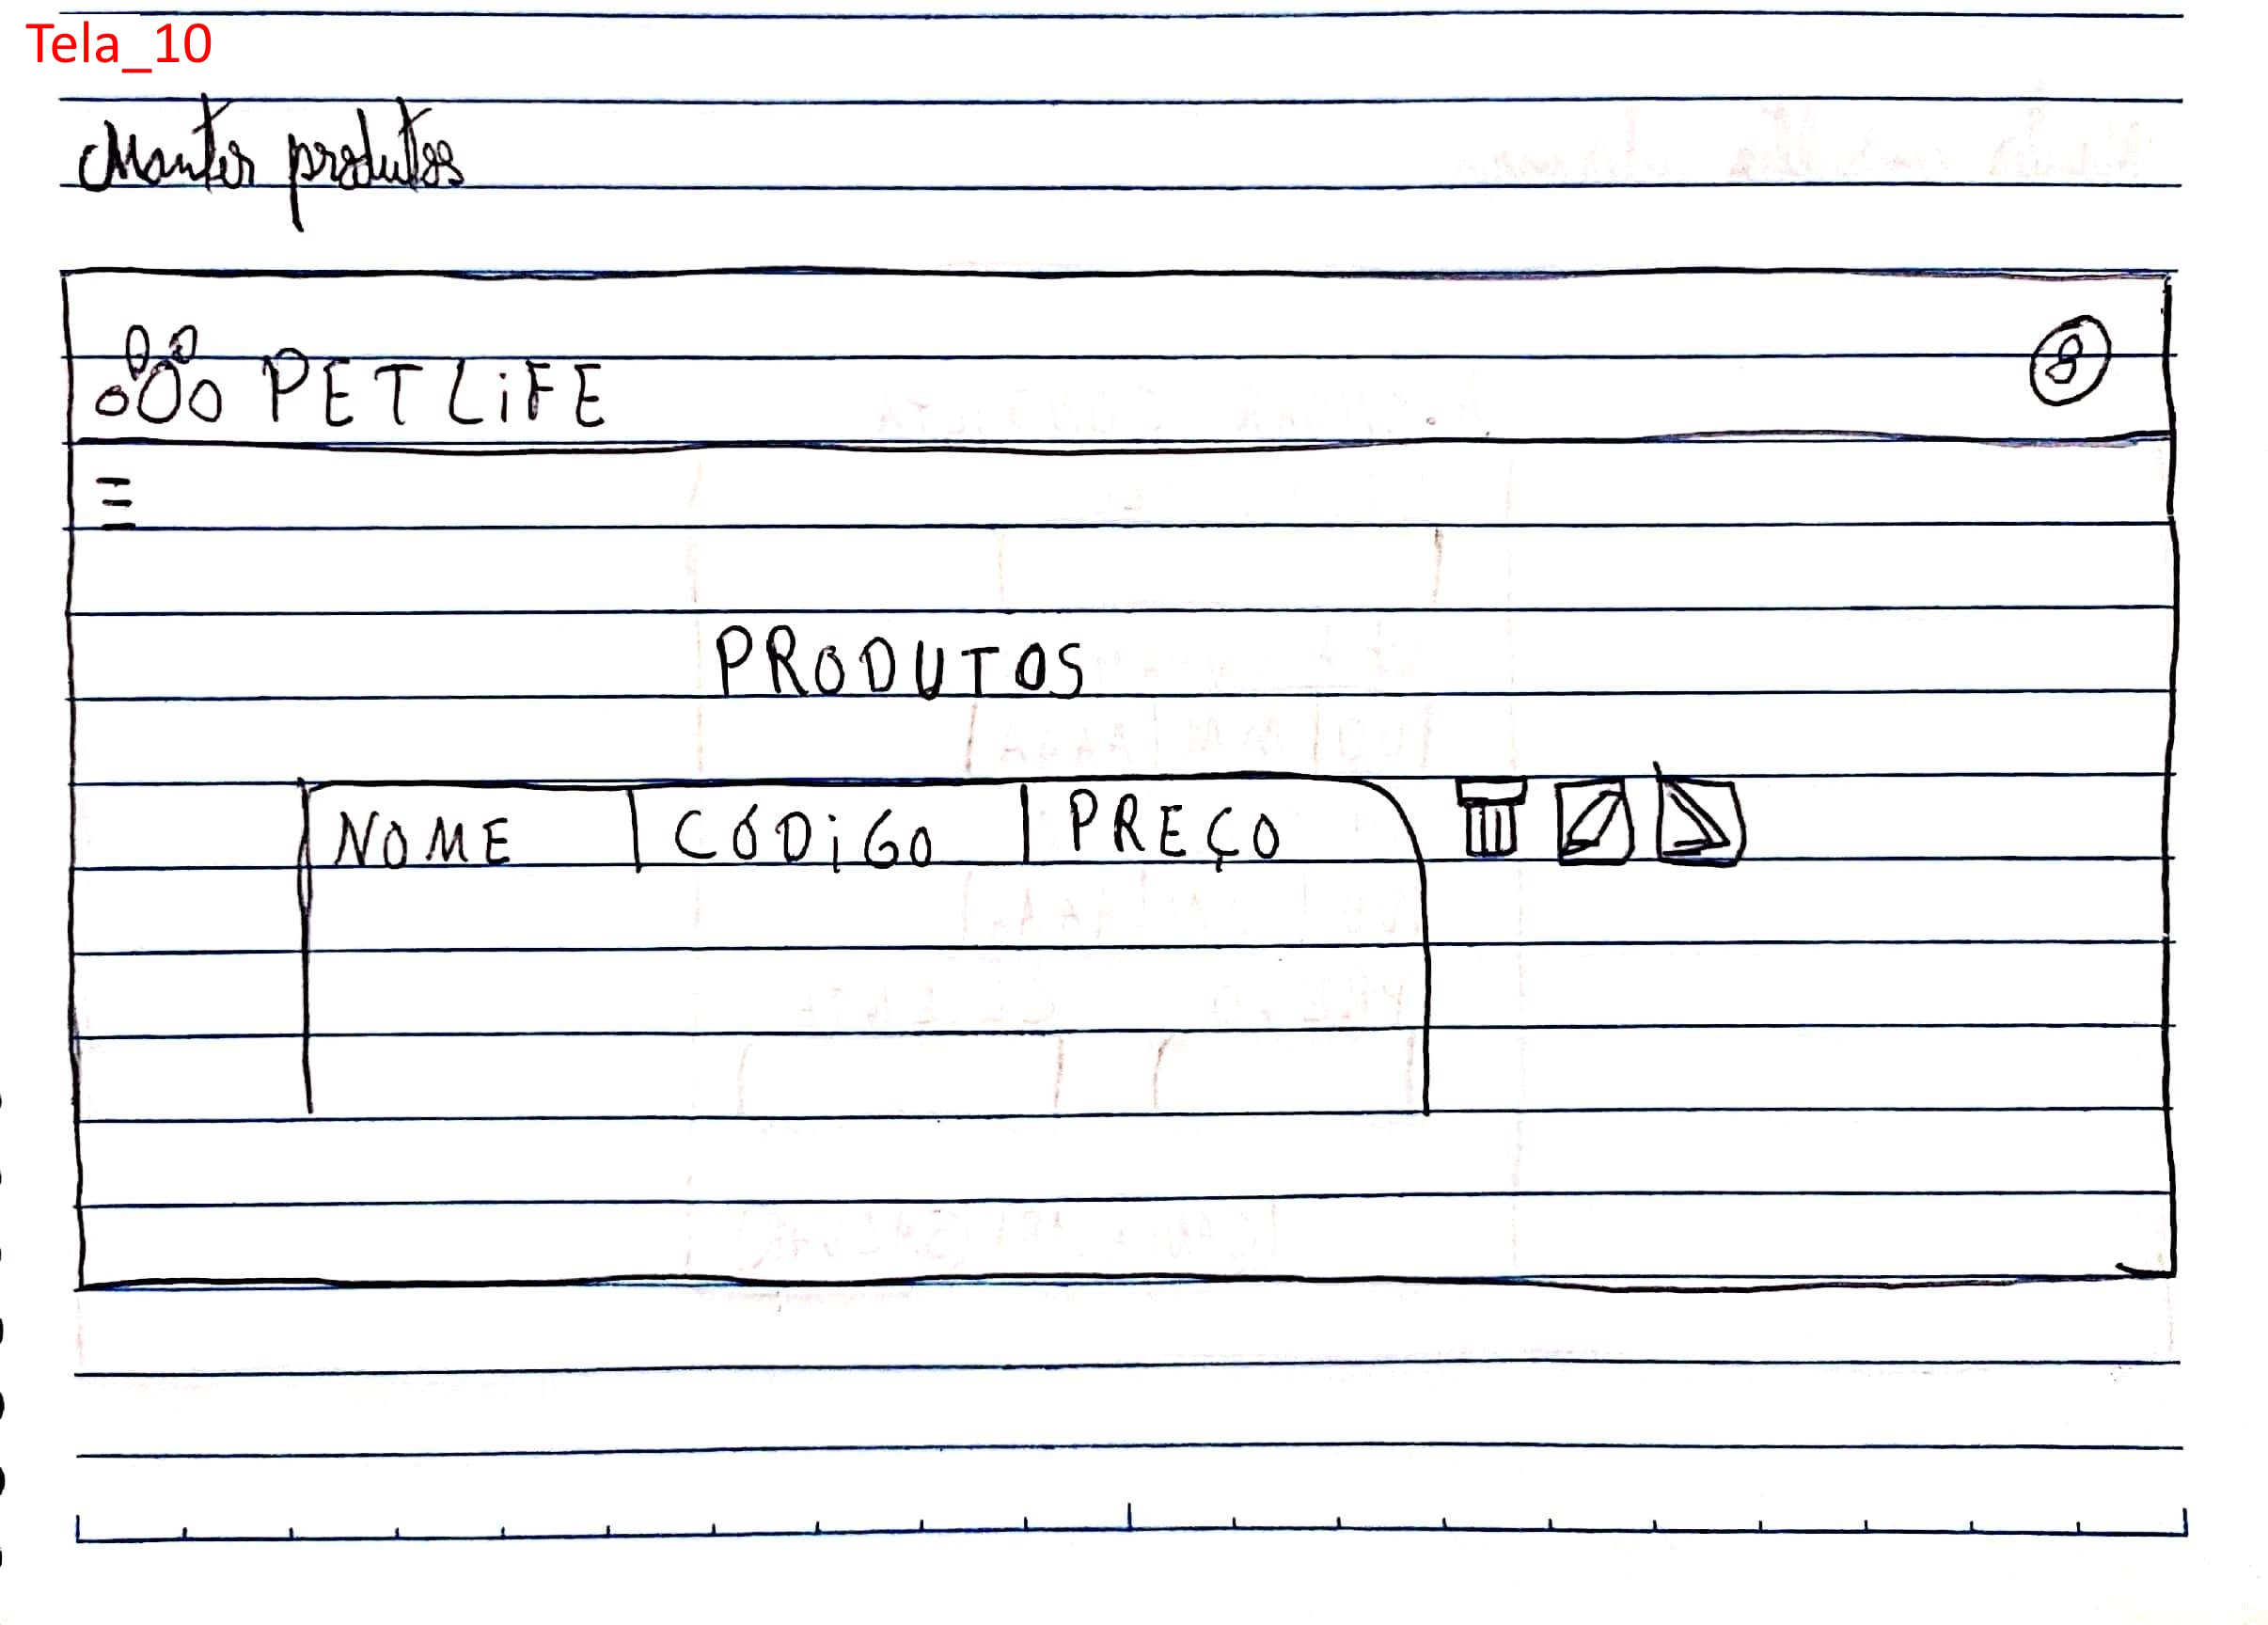 Tela_10
Manter produtos
PETLiFE
PRODUTOS
NOME CÓDiGO PREÇO